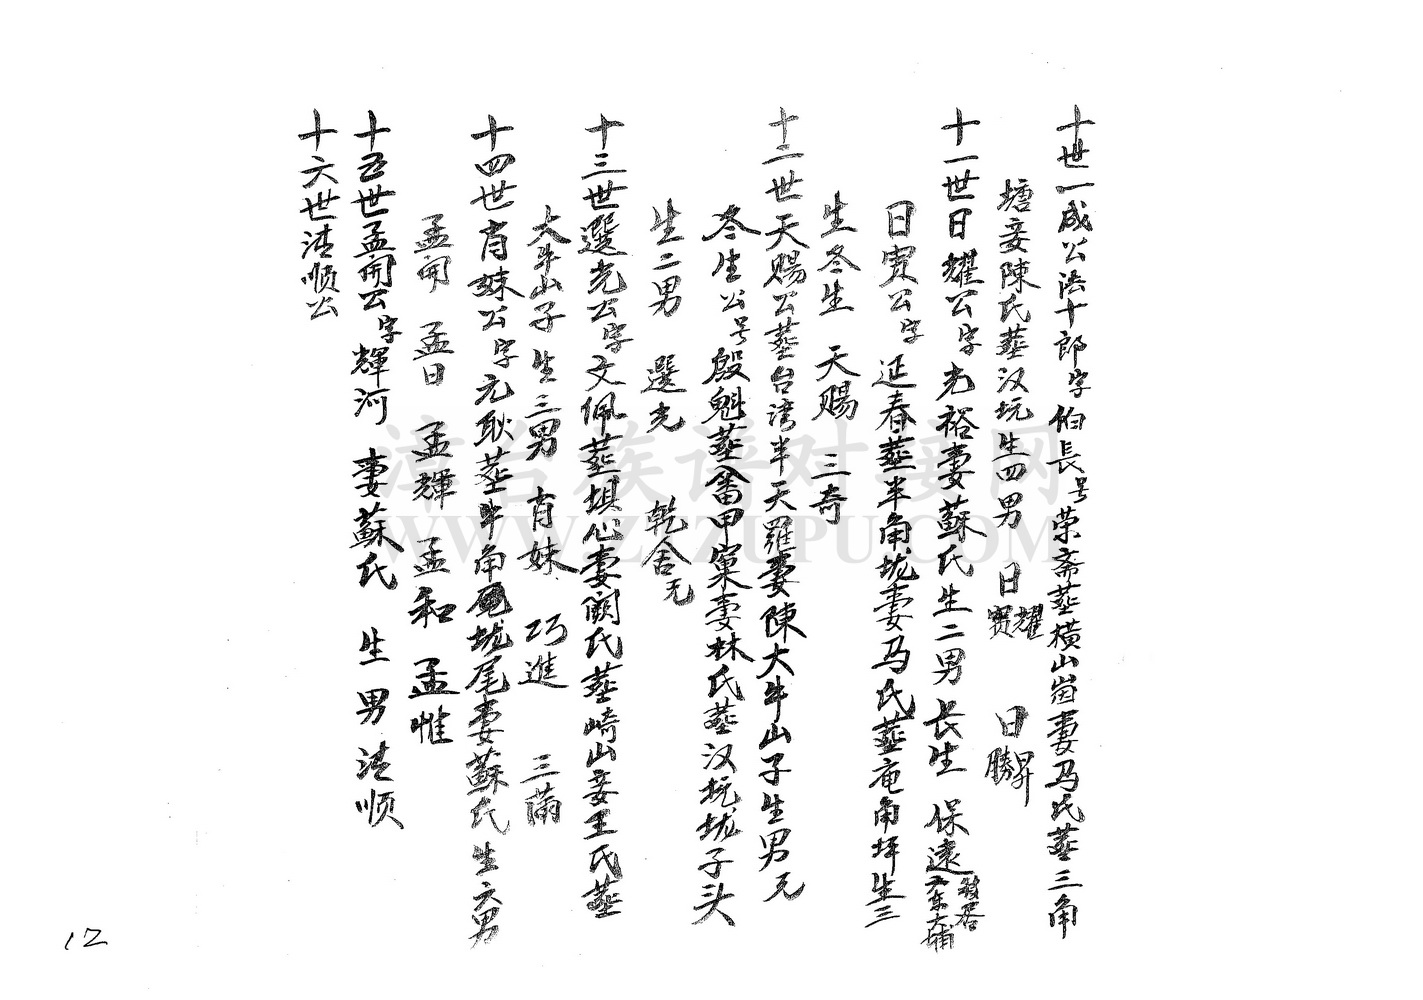 十世一成公法十郎字伯長号荣斋墓横山崗妻马氏墓三角
塘妾陳氏墓汉坑生四男 日耀 日寶 日昇 日勝
十一世日耀公字光裕妻蘇氏生二男 长生 保遠 移居广东大埔
日寳公字 延春墓半角垅妻马氏墓庵角坪生三
生冬生 天赐 三奇
十二世天赐公墓台湾半天羅妻陳大牛山子生男元
冬生公号殷魁墓畲甲窠妻林氏墓汉坑垅子头
生二男 選光 乾舍 无
十三世選光公字文佩墓堪心妻阙氏墓崎山妾王氏墓
大牛山子 生三男 育妹 巧進 三滿
十四世育妹公字元耿墓牛角尾垅尾妻蘇氏生六男
孟開 孟日 孟輝 孟和 孟惟
十五世孟開公字輝河 妻蘇氏 生男清顺
十六世清顺公
12
漳台族谱对接网
WWW.ZTZUPU.COM